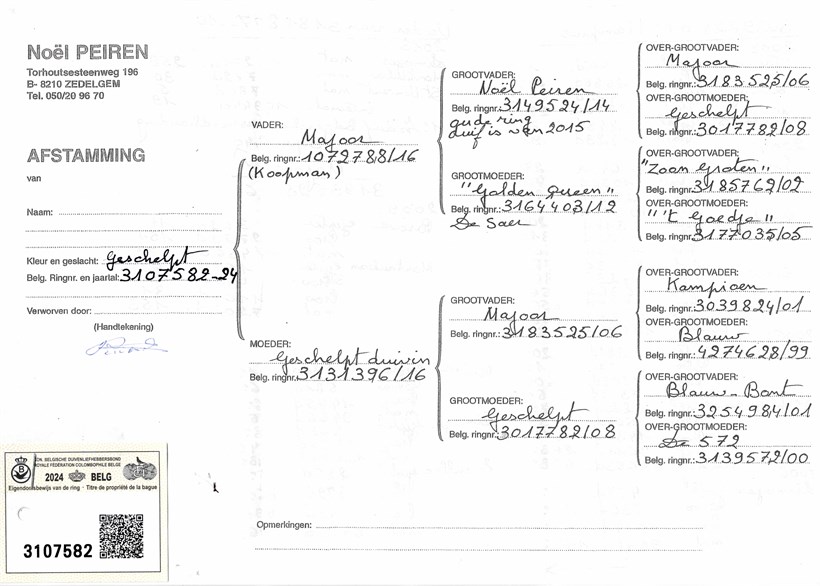 Noël PEIREN
Torhoutsesteenweg 196
B- 8210 ZEDELGEM
Tel. 050/20 96 70
AFSTAMMING
van
Naam:
Kleur en geslacht: Geschelpt
Belg. Ringnr. en jaartal: 3107582-24
Verworven door:
(Handtekening)
VADER:
Majoor
Belg. ringnr.: 1072788/16
(Koopman)
MOEDER:
Geschelpt duivin
Belg. ringnr. 3131396/16
GROOTVADER:
Noël Peiren
Belg. ringnr. 3149524/14
oude ring
duif is van 2015
GROOTMOEDER:
"Golden Queen"
Belg. ringnr.: 3164403/12
De Saer
GROOTVADER:
Majoor
Belg. ringnr. 3183525/06
GROOTMOEDER:
Geschelpt
Belg. ringnr.: 3017782/08
OVER-GROOTVADER:
Majoor
Belg. ringnr.: 3183525/06
OVER-GROOTMOEDER:
Geschelpt
Belg. ringnr.: 3017782/08
OVER-GROOTVADER:
"Zoon Groten"
Belg. ringnr. 3185762/02
OVER-GROOTMOEDER:
"'t Goedje"
Belg. ringnr. 3177035/05
OVER-GROOTVADER:
Kampioen
Belg. ringnr.: 3039824/01
OVER-GROOTMOEDER:
Blauw
Belg. ringnr.: 4274628/99
OVER-GROOTVADER:
Blauw-Bont
Belg. ringnr.: 3254984/01
OVER-GROOTMOEDER:
De 572
Belg. ringnr.: 3139572/00
KON. BELGISCHE DUIVENLIEFHEBBERSBOND
ROYALE FÉDÉRATION COLOMBOPHILE BELGE
2024 BELG
Eigendomsbewijs van de ring - Titre de propriété de la bague
3107582
Opmerkingen: